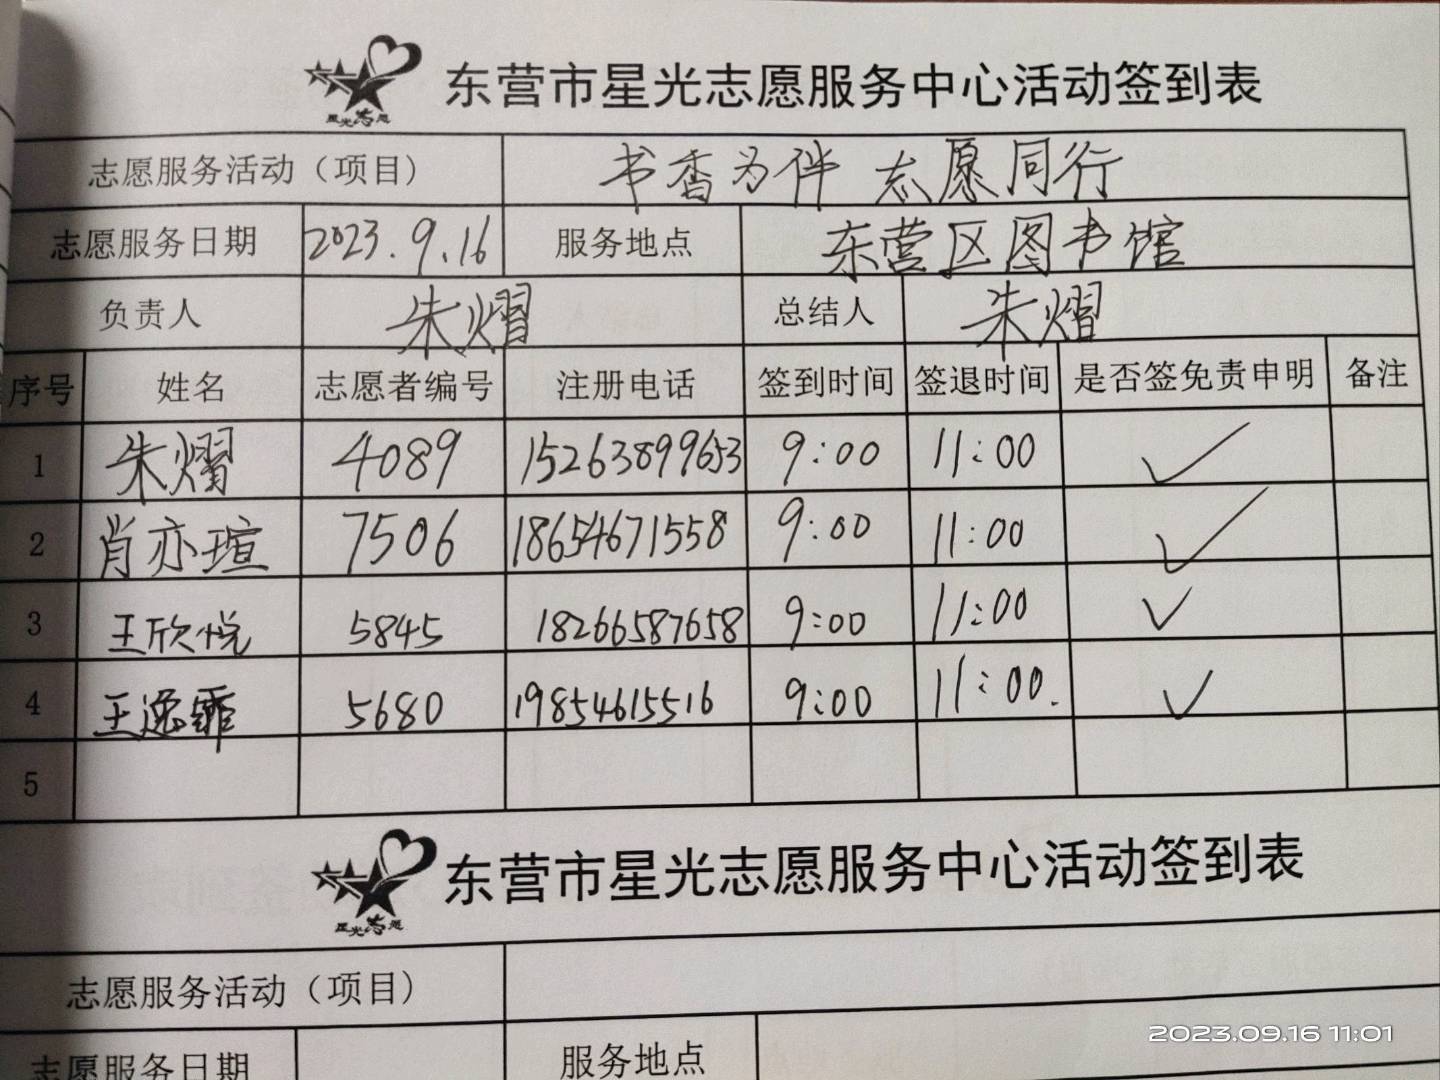 东营市星光志愿服务中心活动签到表
星光志愿
志愿服务活动（项目） 书香为伴 志愿同行
志愿服务日期 2023.9.16 服务地点 东营区图书馆
负责人 朱熠 总结人 朱熠
序号 姓名 志愿者编号 注册电话 签到时间 签退时间 是否签免责申明 备注
1 朱熠 4089 15263899653 9:00 11:00 ✓
2 肖亦瑄 7506 18654671558 9:00 11:00 ✓
3 王欣悦 5845 18266587658 9:00 11:00 ✓
4 王逸霏 5680 19854615516 9:00 11:00. ✓
5
东营市星光志愿服务中心活动签到表
星光志愿
志愿服务活动（项目）
志愿服务日期 服务地点
2023.09.16 11:01